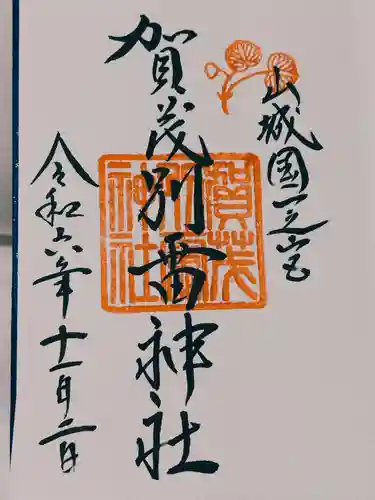 山城国一之宮
賀茂別雷神社
賀茂
別雷
神社
令和六年十一月二日